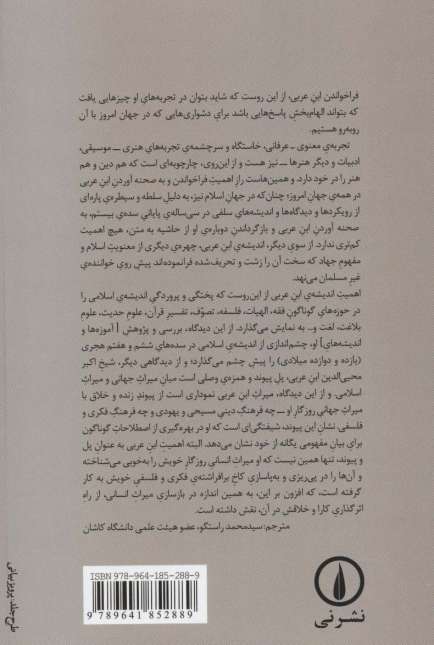 فراخواندن ابن عربی، از این روست که شاید بتوان در تجربه‌های او چیزهایی یافت
که بتواند الهام‌بخش پاسخ‌هایی باشد برای دشواری‌هایی که در جهان امروز با آن
روبه‌رو هستیم.
تجربه‌ی معنوی ـ عرفانی، خاستگاه و سرچشمه‌ی تجربه‌های هنری ــ موسیقی،
ادبیات و دیگر هنرها ــ نیز هست و از این‌روی، چارچوبه‌ای است که هم دین و هم
هنر را در خود دارد. و همین‌هاست راز اهمیت فراخواندن و به صحنه آوردن ابن عربی
در همه‌ی جهان امروز؛ چنان‌که در جهان اسلام نیز، به دلیل سلطه و سیطره‌ی پاره‌ای
از رویکردها و دیدگاه‌ها و اندیشه‌های سلفی در سی‌ساله‌ی پایانی سده‌ی بیستم، به
صحنه آوردن ابن عربی و بازگرداندن دوباره‌ی او از حاشیه به متن، هیچ اهمیت
کم‌تری ندارد. از سوی دیگر، اندیشه‌ی ابن عربی، چهره‌ی دیگری از معنویت اسلام و
مفهوم جهاد که سخت آن را زشت و تحریف‌شده فرانموده‌اند پیش روی خواننده‌ی
غیر مسلمان می‌نهد.
اهمیت اندیشه‌ی ابن عربی از این‌روست که پختگی و پروردگی اندیشه‌ی اسلامی را
در حوزه‌های گوناگون فقه، الهیات، فلسفه، تصوّف، تفسیر قرآن، علوم حدیث، علوم
بلاغت، لغت و... به نمایش می‌گذارد. از این دیدگاه، بررسی و پژوهش [آموزه‌ها و
اندیشه‌های] او، چشم‌اندازی از اندیشه‌ی اسلامی در سده‌های ششم و هفتم هجری
(یازده و دوازده میلادی) را پیش چشم می‌گذارد؛ و از دیدگاهی دیگر، شیخ اکبر
محیی‌الدین ابن عربی، پل پیوند و همزه‌ی وصلی است میان میراث جهانی و میراث
اسلامی. و از این دیدگاه، میراث ابن عربی نموداری است از پیوند زنده و خلاق با
میراث جهانی روزگار او ــ چه فرهنگ دینی مسیحی و یهودی و چه فرهنگ فکری و
فلسفی. نشان این پیوند، شیفتگی‌ای است که او در بهره‌گیری از اصطلاحات گوناگون
برای بیان مفهومی یگانه از خود نشان می‌دهد. البته اهمیت ابن عربی به عنوان پل
و پیوند، تنها همین نیست که او میراث انسانی روزگار خویش را به‌خوبی می‌شناخته
و آن‌ها را در پی‌ریزی و به‌پاسازی کاخ برافراشته‌ی فکری و فلسفی خویش به کار
گرفته است، که افزون بر این، به همین اندازه در بازسازی میراث انسانی، از راه
اثرگذاری کارا و خلاقش در آن، نقش داشته است.
مترجم: سیدمحمد راستگو، عضو هیئت علمی دانشگاه کاشان
طرح جلد: پرویز بیانی
ISBN 978-964-185-288-9
9 789641 852889
نشر نی